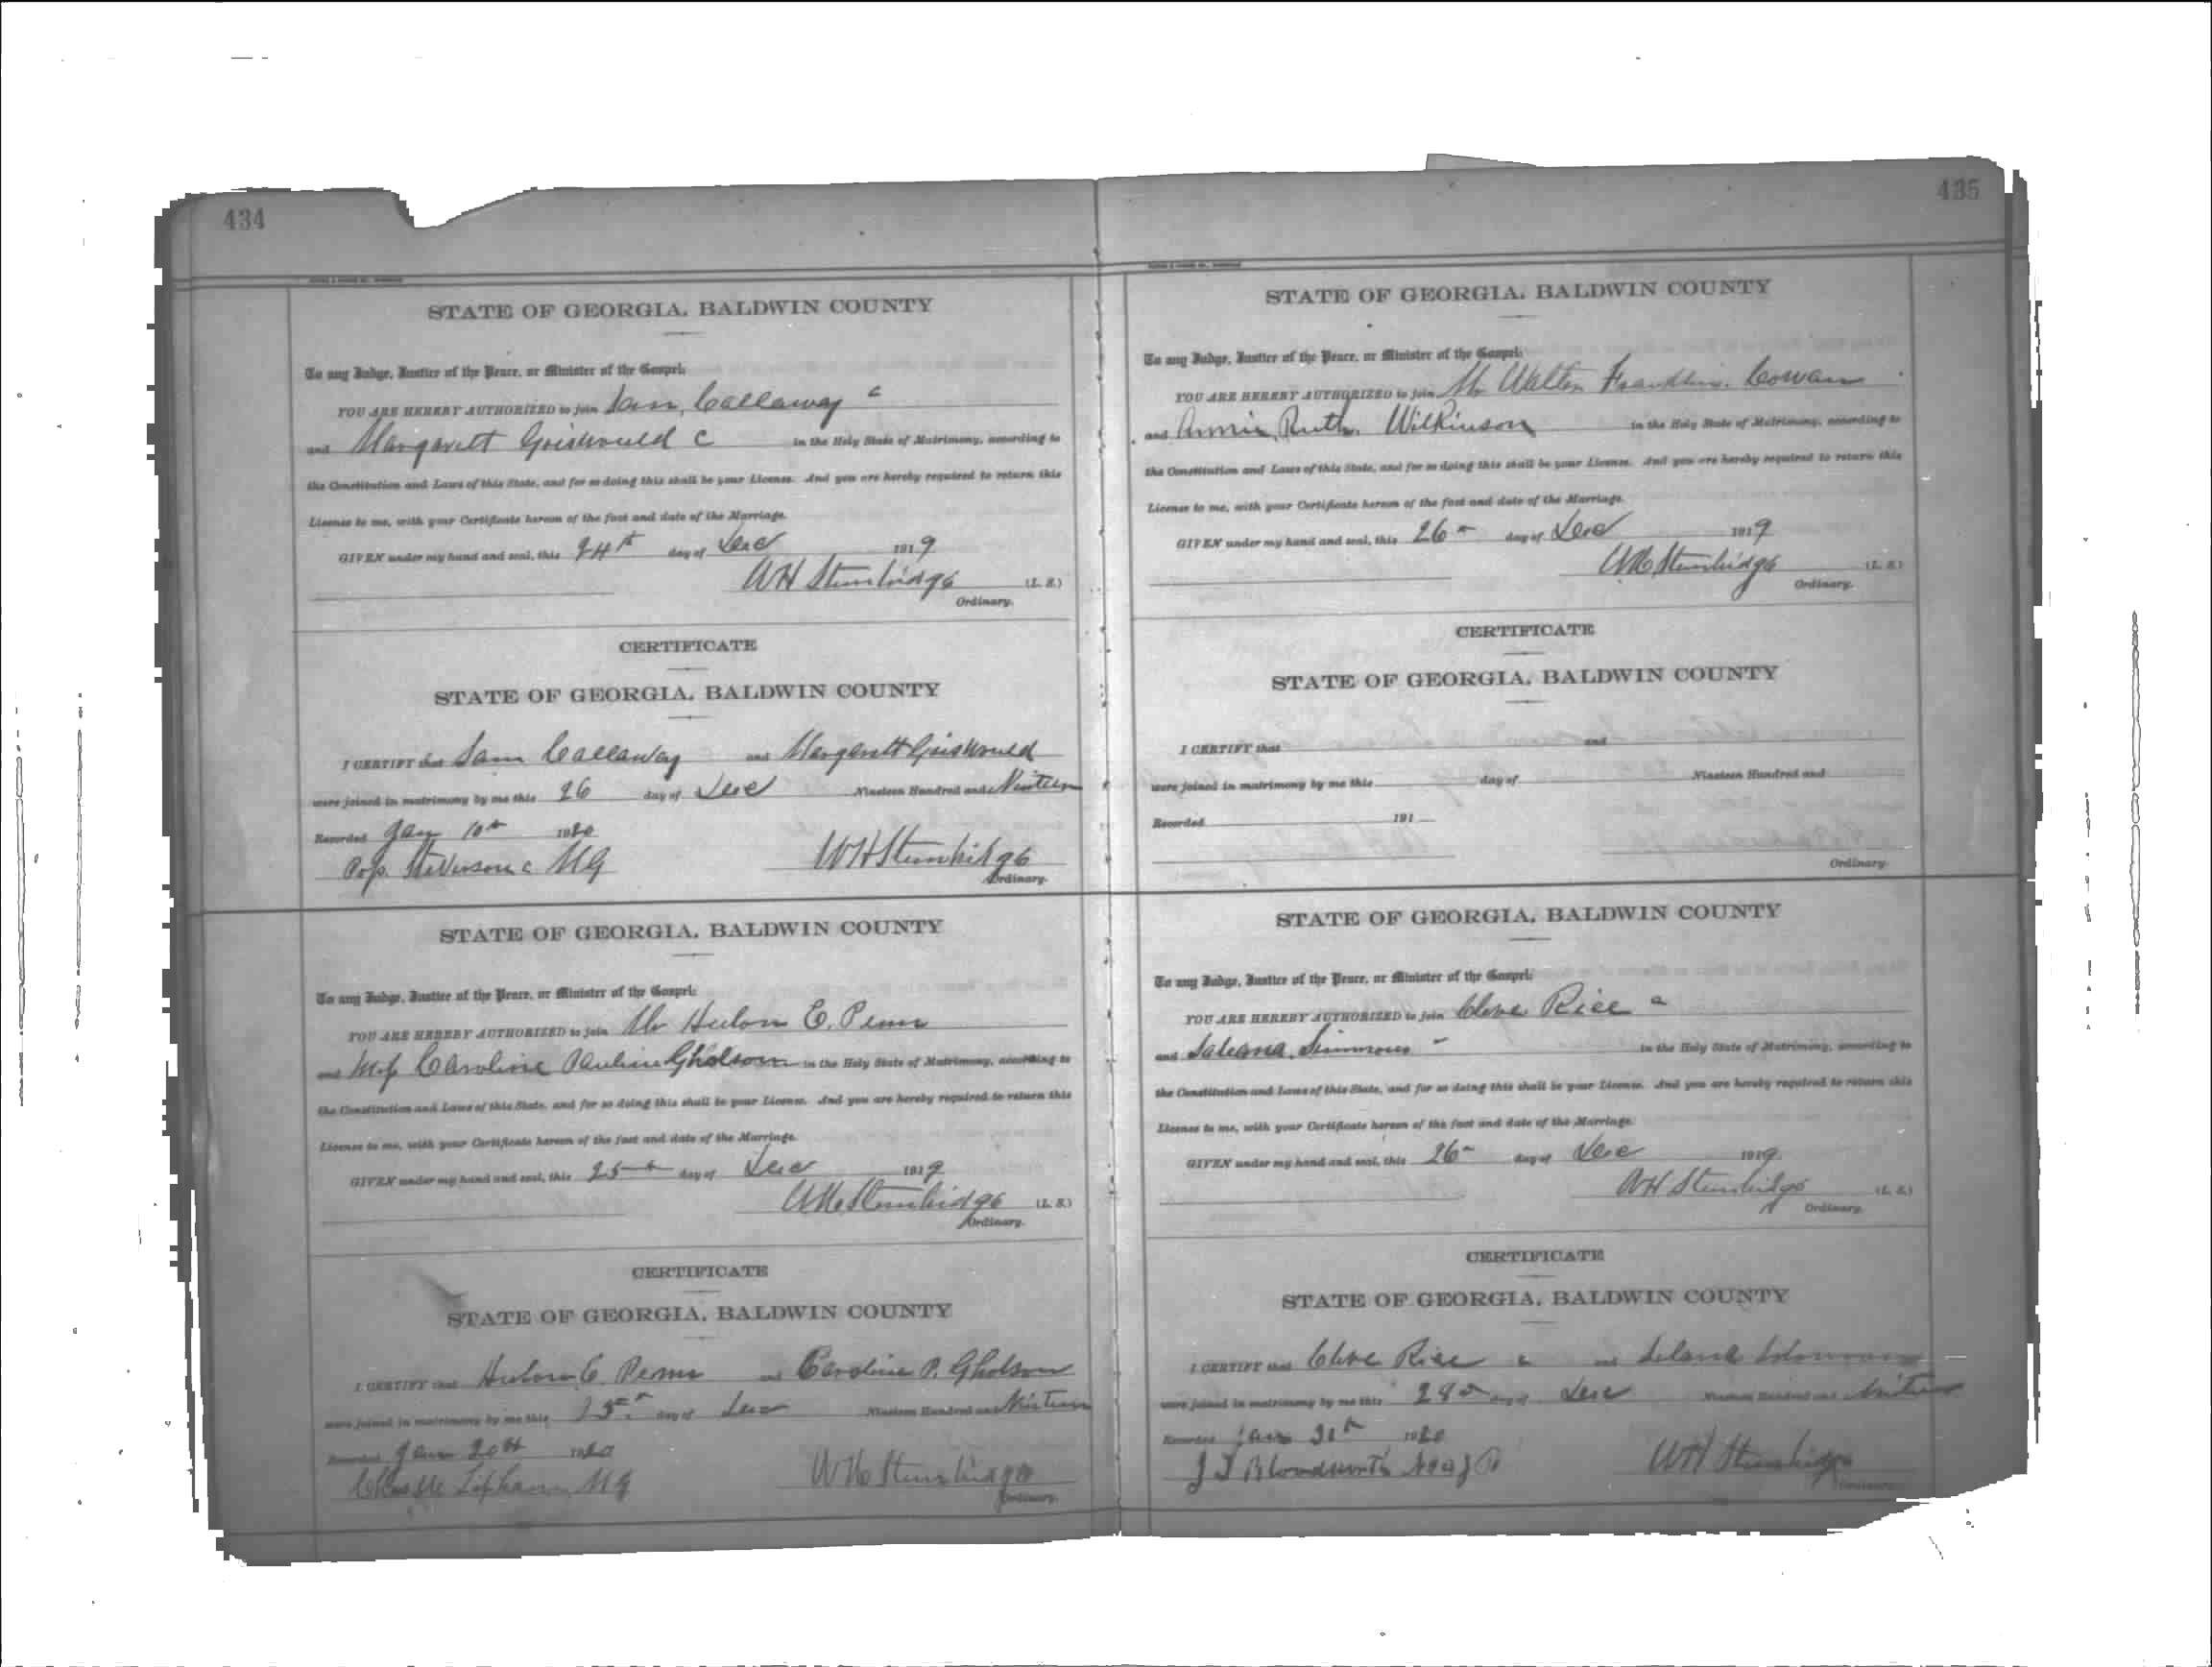 434
STATE OF GEORGIA, BALDWIN COUNTY
To any Judge, Justice of the Peace, or Minister of the Gospel:
YOU ARE HEREBY AUTHORIZED to join Sam Callaway c
and Margarett Griswould c in the Holy State of Matrimony, according to
the Constitution and Laws of this State, and for so doing this shall be your License. And you are hereby required to return this
License to me, with your Certificate hereon of the fact and date of the Marriage.
GIVEN under my hand and seal, this 24th day of Dec 1919
WH Stembridge (L. S.)
Ordinary.
CERTIFICATE
STATE OF GEORGIA, BALDWIN COUNTY
I CERTIFY that Sam Callaway and Margarett Griswould
were joined in matrimony by me this 26 day of Dec Nineteen Hundred and
Recorded Jan 10th 1920
Steverson c MG WH Stembridge
Ordinary.
STATE OF GEORGIA, BALDWIN COUNTY
To any Judge, Justice of the Peace, or Minister of the Gospel:
YOU ARE HEREBY AUTHORIZED to join Mr Hulon E. Penn
and Caroline Pauline Gholson in the Holy State of Matrimony, according to
the Constitution and Laws of this State, and for so doing this shall be your License. And you are hereby required to return this
License to me, with your Certificate hereon of the fact and date of the Marriage.
GIVEN under my hand and seal, this 25th day of Dec 1919
WH Stembridge (L. S.)
Ordinary.
CERTIFICATE
STATE OF GEORGIA, BALDWIN COUNTY
I CERTIFY that Hulon E. Penn and Caroline P. Gholson
were joined in matrimony by me this day of Dec Nineteen Hundred and
Recorded Jan 20th 1920
MG WH Stembridge
Ordinary.
435
STATE OF GEORGIA, BALDWIN COUNTY
To any Judge, Justice of the Peace, or Minister of the Gospel:
YOU ARE HEREBY AUTHORIZED to join Mr Walter Franklin Cowan
and Annie Ruth Wilkinson in the Holy State of Matrimony, according to
the Constitution and Laws of this State, and for so doing this shall be your License. And you are hereby required to return this
License to me, with your Certificate hereon of the fact and date of the Marriage.
GIVEN under my hand and seal, this 26th day of Dec 1919
WH Stembridge (L. S.)
Ordinary.
CERTIFICATE
STATE OF GEORGIA, BALDWIN COUNTY
I CERTIFY that and
were joined in matrimony by me this day of Nineteen Hundred and
Recorded 191
Ordinary.
STATE OF GEORGIA, BALDWIN COUNTY
To any Judge, Justice of the Peace, or Minister of the Gospel:
YOU ARE HEREBY AUTHORIZED to join Rice c
and Simmons in the Holy State of Matrimony, according to
the Constitution and Laws of this State, and for so doing this shall be your License. And you are hereby required to return this
License to me, with your Certificate hereon of the fact and date of the Marriage.
GIVEN under my hand and seal, this 26th day of Dec 1919
WH Stembridge (L. S.)
Ordinary.
CERTIFICATE
STATE OF GEORGIA, BALDWIN COUNTY
I CERTIFY that Rice c and
were joined in matrimony by me this 28th day of Dec Nineteen Hundred and
Recorded Jan 1920
Bloodworth WH Stembridge
Ordinary.